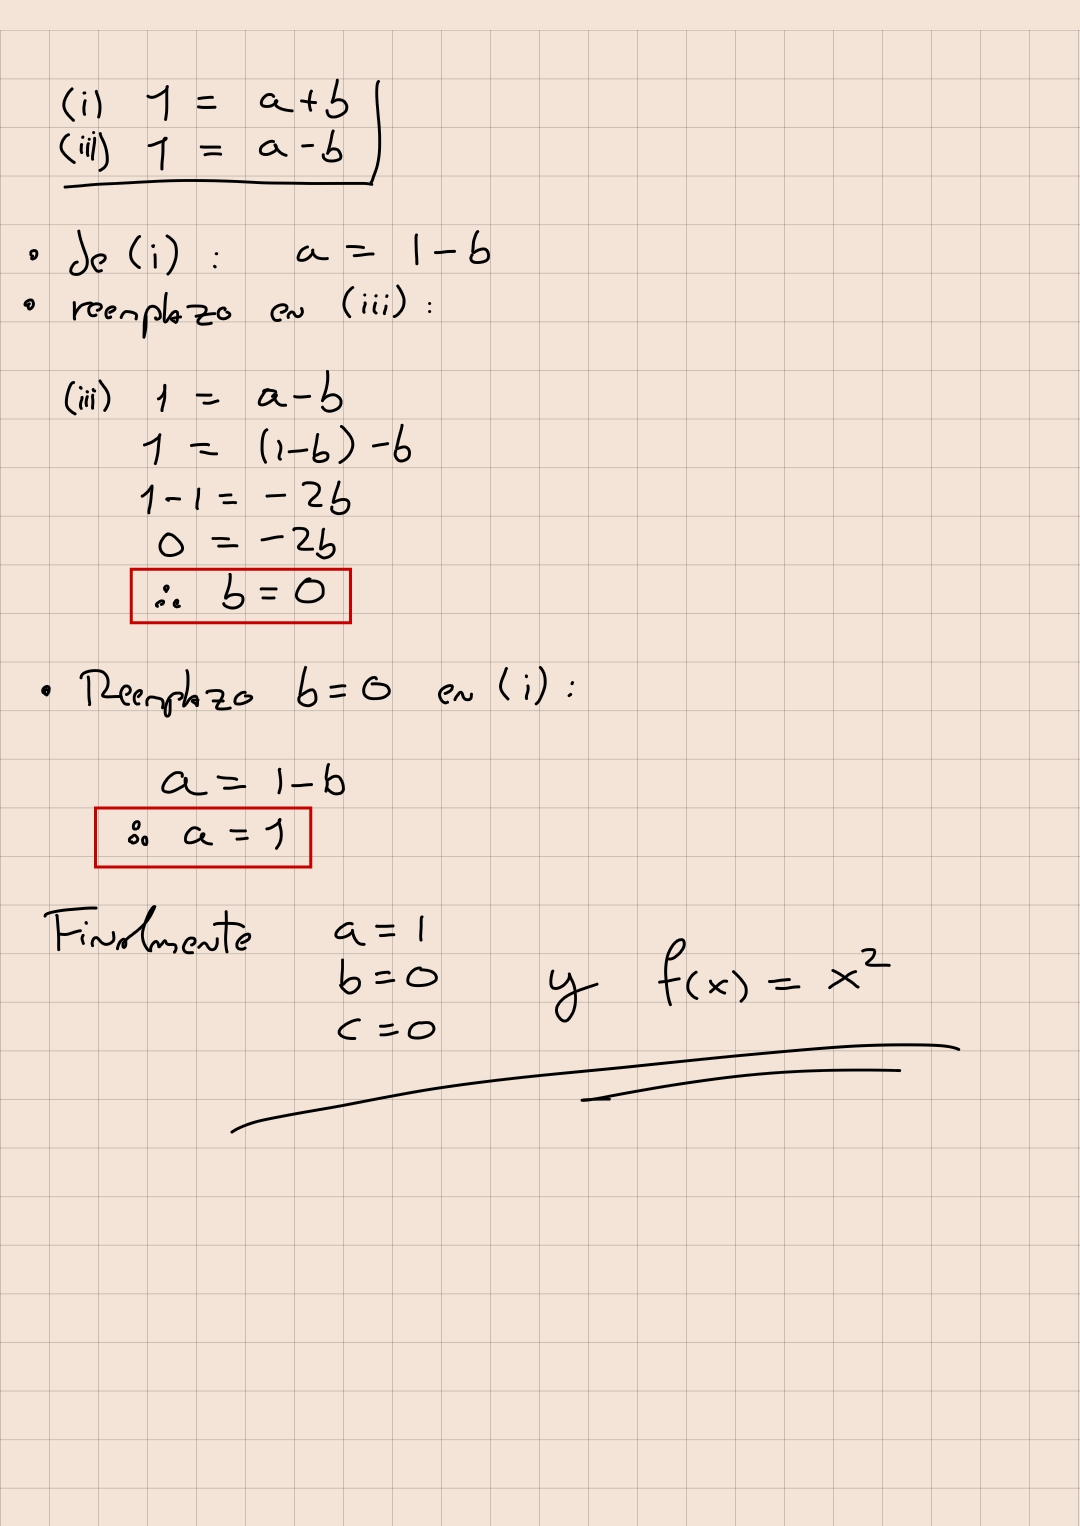 (i) 1 = a+b
(iii) 1 = a-b
• de (i) : a = 1-b
• reemplazo en (iii) :
(iii) 1 = a-b
1 = (1-b) -b
1-1 = -2b
0 = -2b
∴ b = 0
• Reemplazo b=0 en (i) :
a = 1-b
∴ a = 1
Finalmente a = 1
b = 0 y f(x) = x²
c = 0